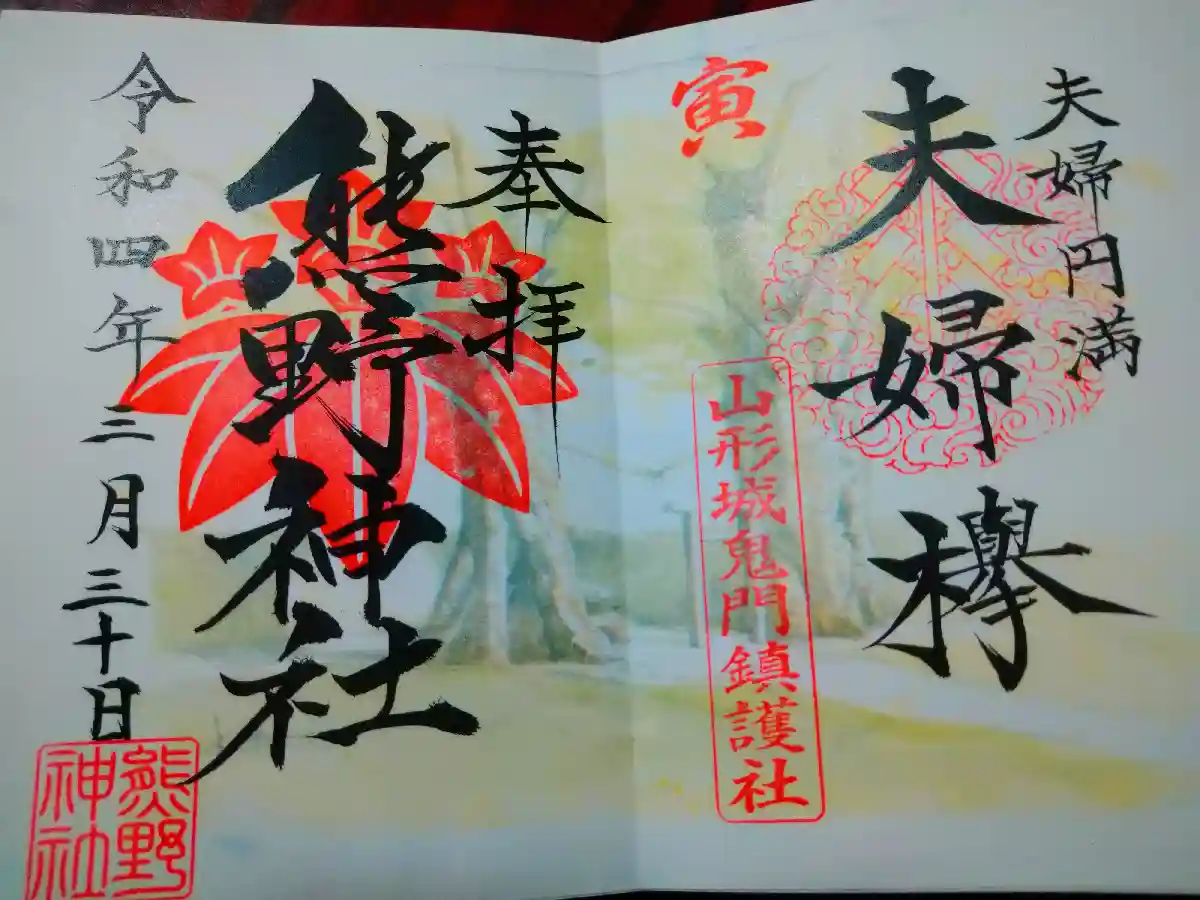 夫婦円満
夫婦欅
寅
山形城鬼門鎮護社
奉拝
熊野神社
令和四年三月三十日
熊野
神社